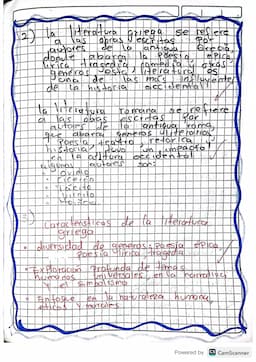 2) la literatura griega se refiere
a las obras escritas por
autores de la antigua Grecia,
donde abarca poesía epica
lirica tragedia comedia, esos
generos literatura es
una de las más influyente
de la historia occidental
la literatura romana se refiere
a las obras escritas por
autores de la antigua roma,
que abarca generos literarios
poesia, teatro, retorica
historia, tuvo un impacto
en la cultura occidental
algunos autores son:
• Ovidio
• Ciceron
• Tácito
3)
Caracteristicas de la literatura
griega
• diversidad de generos: poesia epica,
poesia lirica, tragedia
• Exploración profunda de temas
humanos universales, en la narrativa
y el simbolismo
• Enfoque en la naturaleza humana,
eticos y morales
Powered by CamScanner